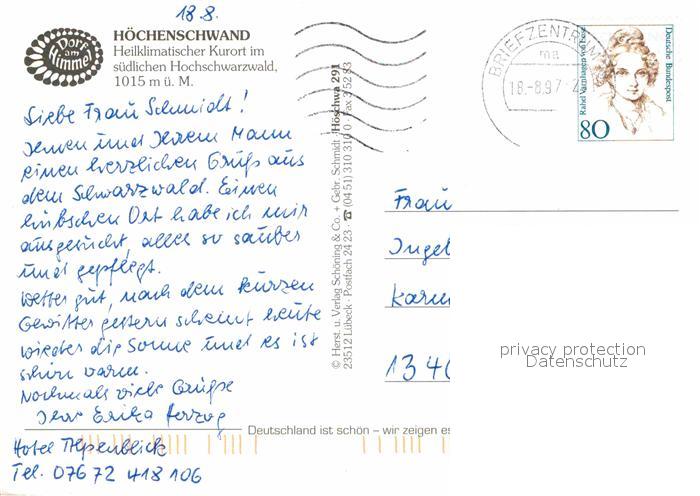 18.8.
Dorf am Himmel
HÖCHENSCHWAND
Heilklimatischer Kurort im
südlichen Hochschwarzwald,
1015 m ü. M.
Liebe Frau Schmidt!
Ihnen und Ihrem Mann
einen herzlichen Gruß aus
dem Schwarzwald. Einen
hübschen Ort habe ich mir
ausgesucht, alles so sauber
und gepflegt.
Wetter gut, nach dem kurzen
Gewitter gestern scheint heute
wieder die Sonne und es ist
schön warm.
Nochmals viele Grüße
Ihre Erika Herzog
Hotel Alpenblick
Tel. 07672 418106
© Herst. u. Verlag Schöning & Co. + Gebr. Schmidt
23512 Lübeck · Postfach 24 23 · ☎ (04 51) 310 310
Höschwa 291
Deutschland ist schön – wir zeigen es
BRIEFZENTRUM
18.-8.97
Rahel Varnhagen von Ense
Deutsche Bundespost
80
Frau
Inge
Karm
1340
privacy protection
Datenschutz